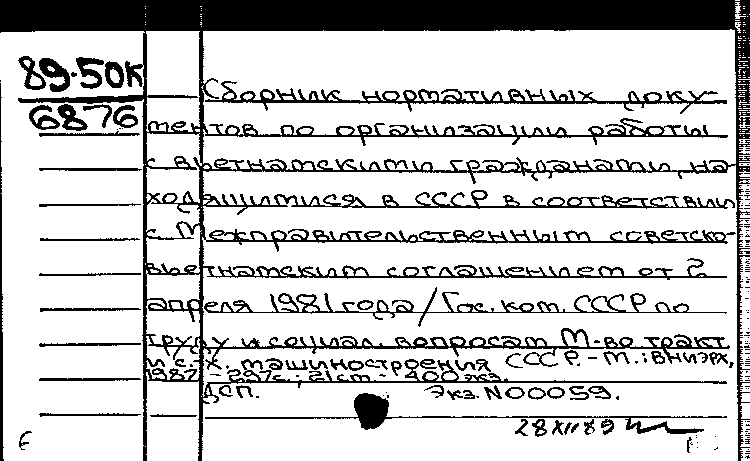 89-50К
6876
Сборник нормативных доку-
ментов по организации работы
с вьетнамскими гражданами, на-
ходящимися в СССР в соответствии
с Межправительственным советско-
вьетнамским соглашением от 2
апреля 1981 года / Гос. ком. СССР по
труду и социал. вопросам М-во тракт.
и с.-х. машиностроения СССР.- М.: ВНИЭРХ,
1987.- 297с.; 21 см.- 400 экз.
ДСП. Экз. N00059.
28 XII 89